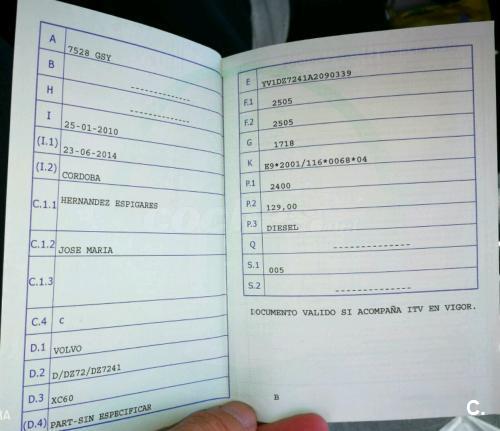 A 7528 GSY
B -------------
H -------------
I 25-01-2010
(I.1) 23-06-2014
(I.2) CORDOBA
C.1.1 HERNANDEZ ESPIGARES
C.1.2 JOSE MARIA
C.1.3
C.4 C
D.1 VOLVO
D.2 D/DZ72/DZ7241
D.3 XC60
(D.4) PART-SIN ESPECIFICAR
E YV1DZ7241A2090339
F.1 2505
F.2 2505
G 1718
K E9*2001/116*0068*04
P.1 2400
P.2 129,00
P.3 DIESEL
Q --------------
S.1 005
S.2 --------------
DOCUMENTO VALIDO SI ACOMPAÑA ITV EN VIGOR.
B
C.